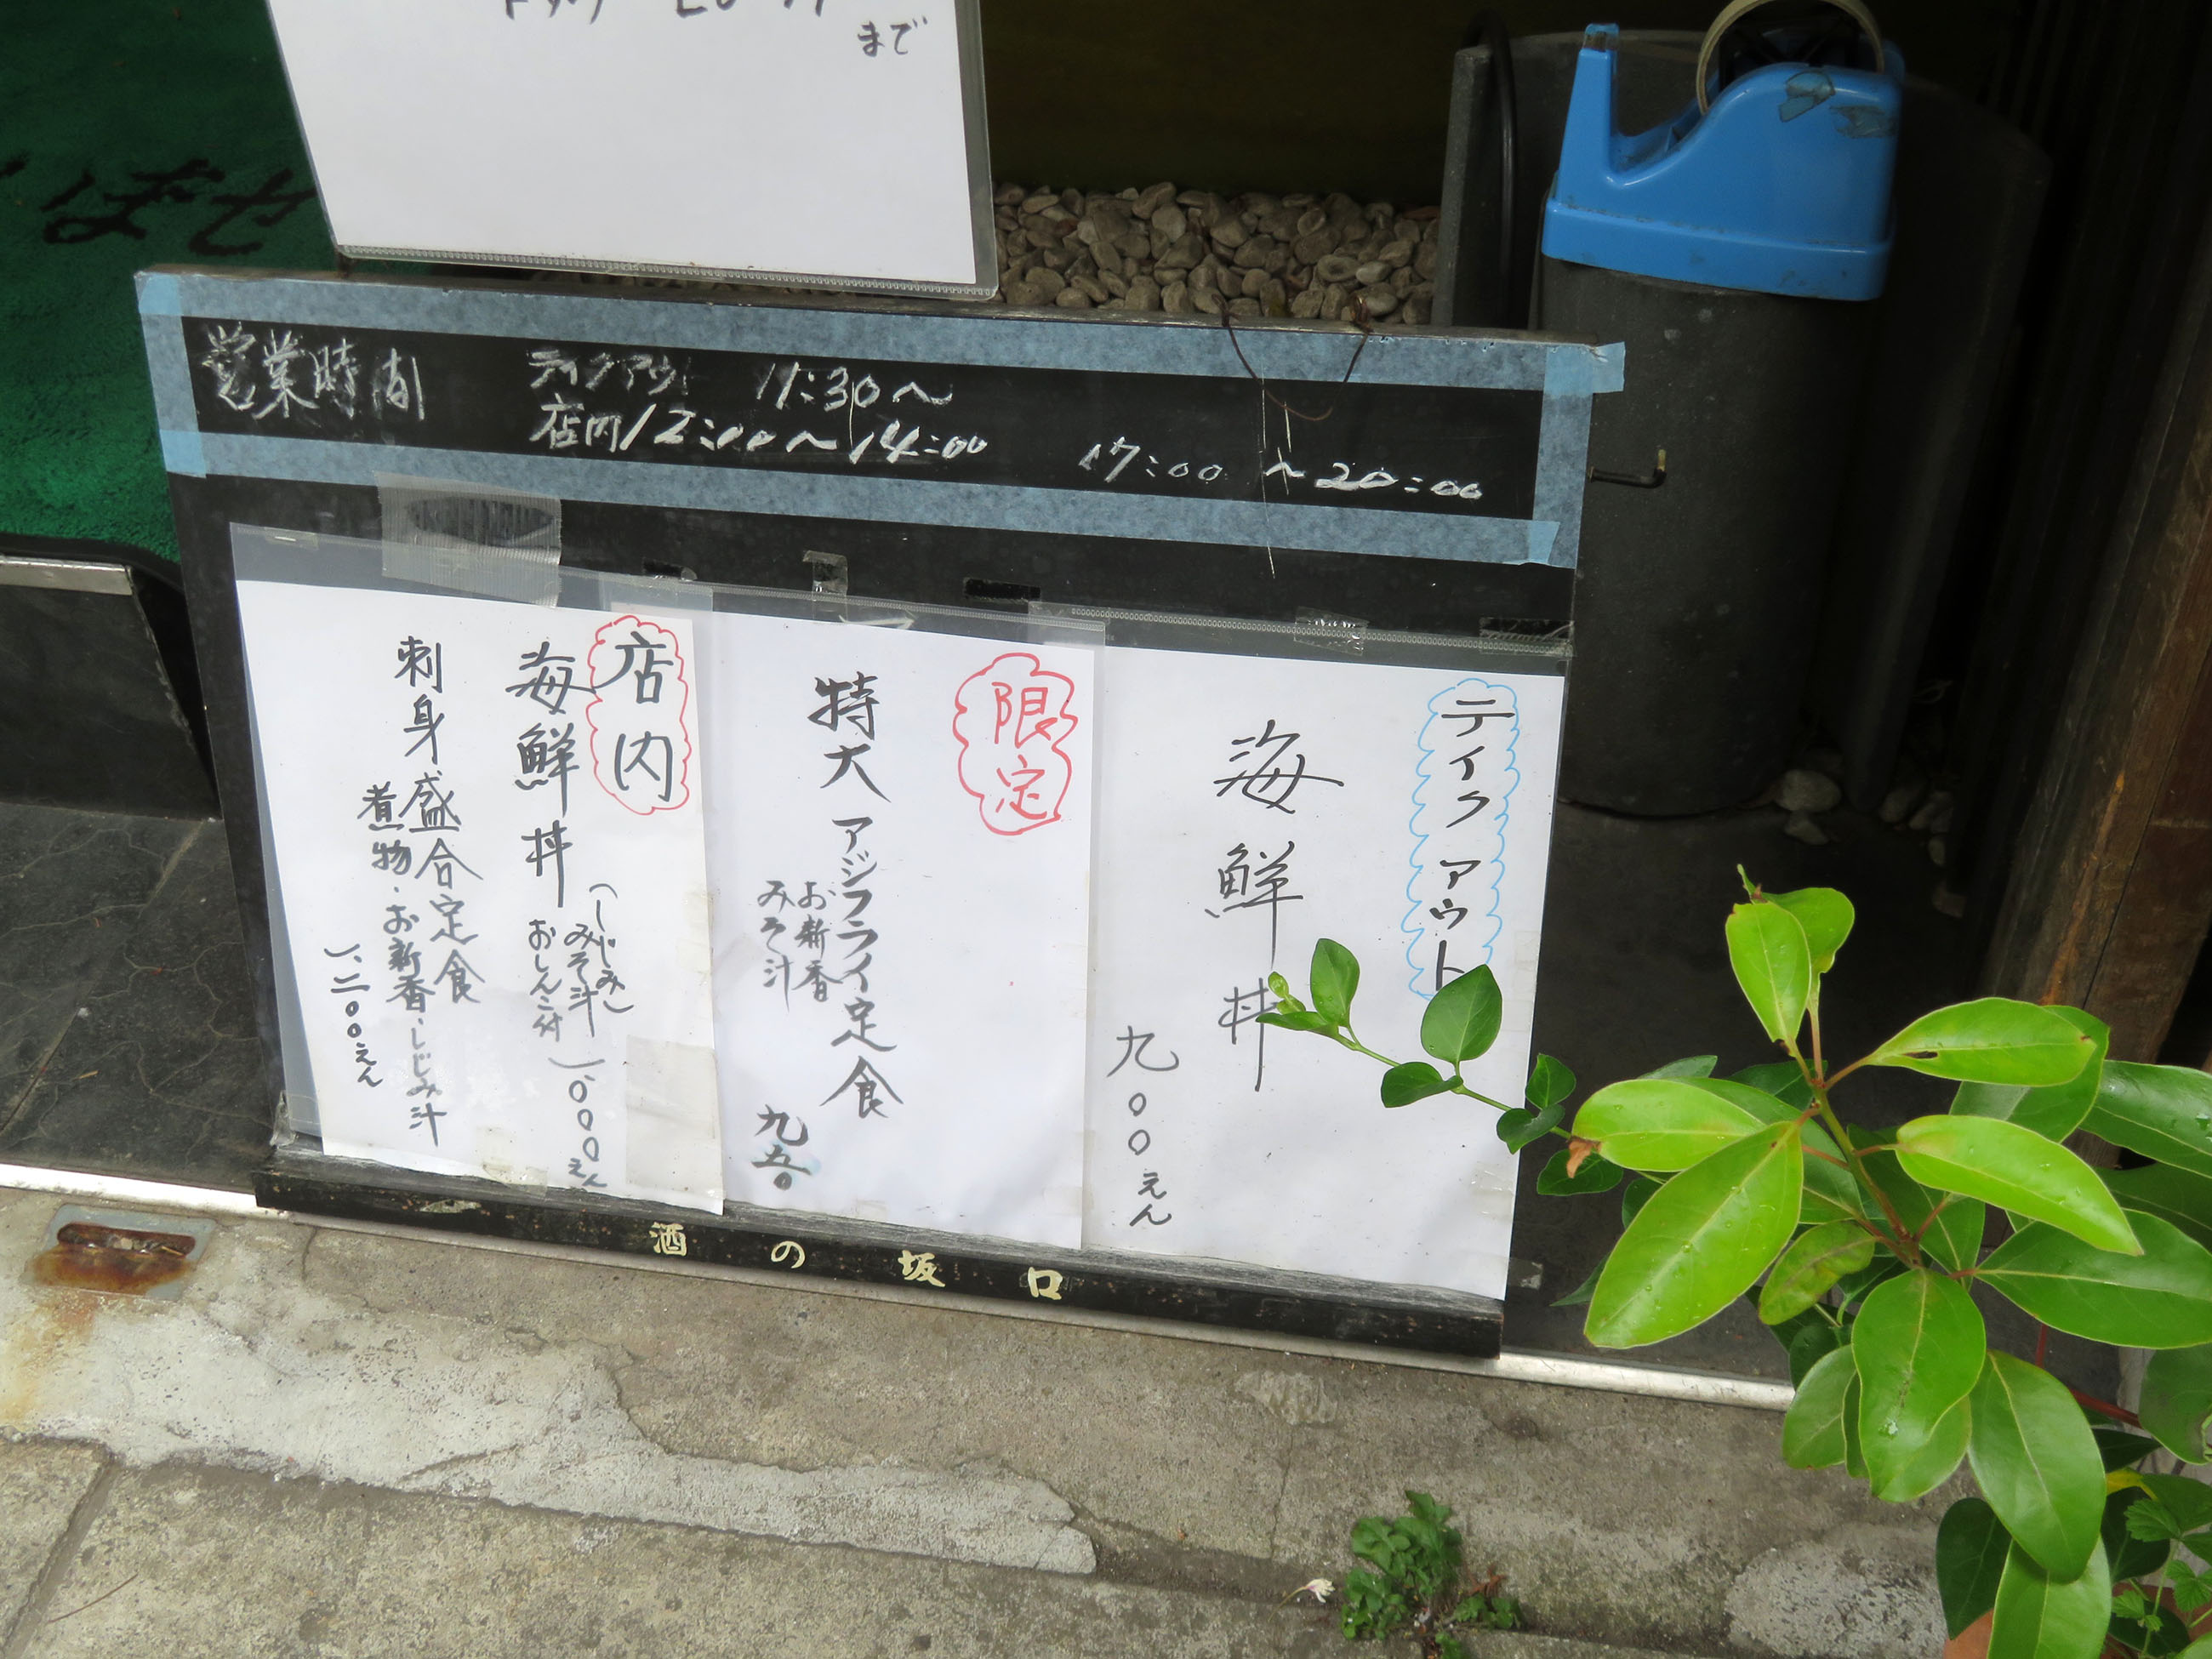 まで
ばせ
営業時間
テイクアウト 11:30〜
店内12:00〜14:00 17:00〜20:00
テイクアウト
海鮮丼
九〇〇えん
限定
特大アジフライ定食
お新香
みそ汁
九五〇
店内
海鮮丼
(しじみ
みそ汁
おしんこ付)
一、〇〇〇えん
刺身盛合定食
煮物・お新香・しじみ汁
一、二〇〇えん
酒の坂口